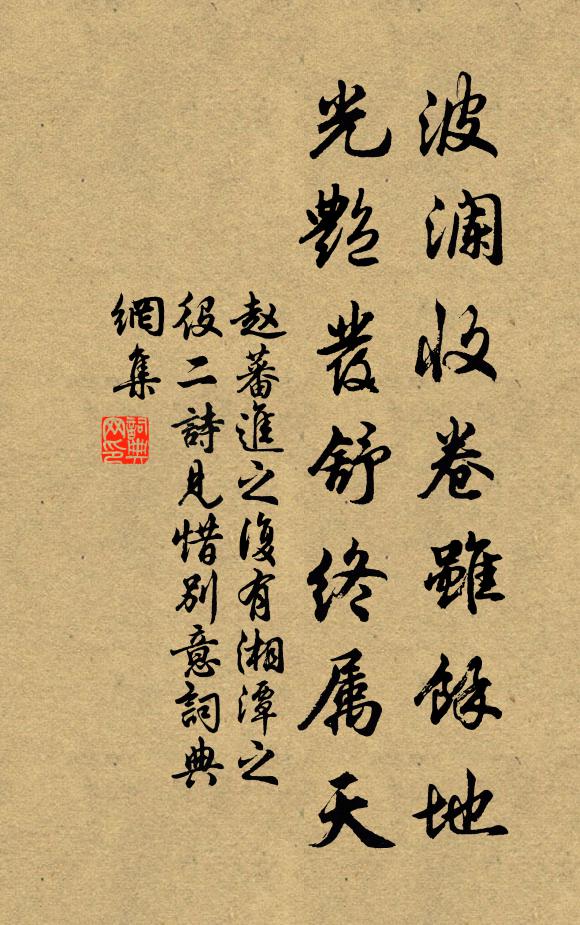 波澜收卷雖餘地
光艷發舒終属天
赵蕃進之復有湘潭之
役二詩見惜别意詞典
網集
詞典
网印